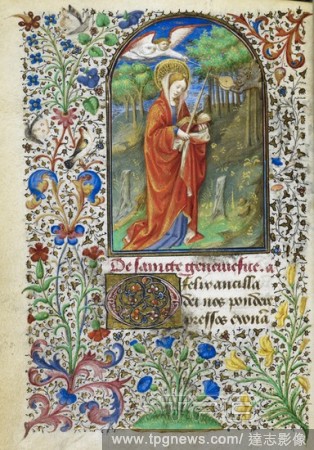 De sancte genevefue. a
felix ancilla
dei nos ponder
pressos erona
www.tpgnews.com/ 達志影像